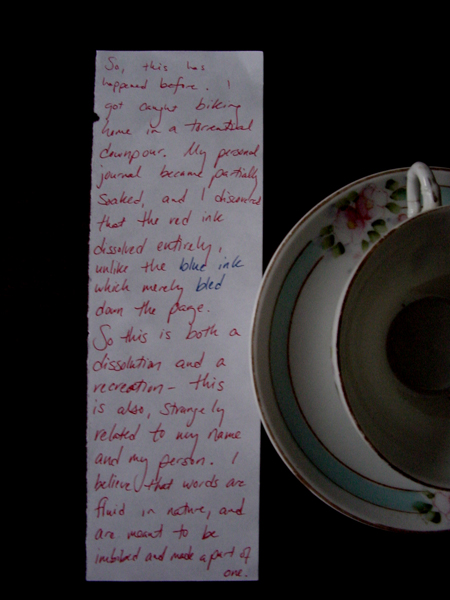 So, this has
happened before. I
got caught biking
home in a torrential
downpour. My personal
journal became partially
soaked, and I discovered
that the red ink
dissolved entirely,
unlike the blue ink
which merely bled
down the page.
So this is both a
dissolution and a
recreation - this
is also, strangely
related to my name
and my person. I
believe that words are
fluid in nature, and
are meant to be
imbibed and made a part of
one.